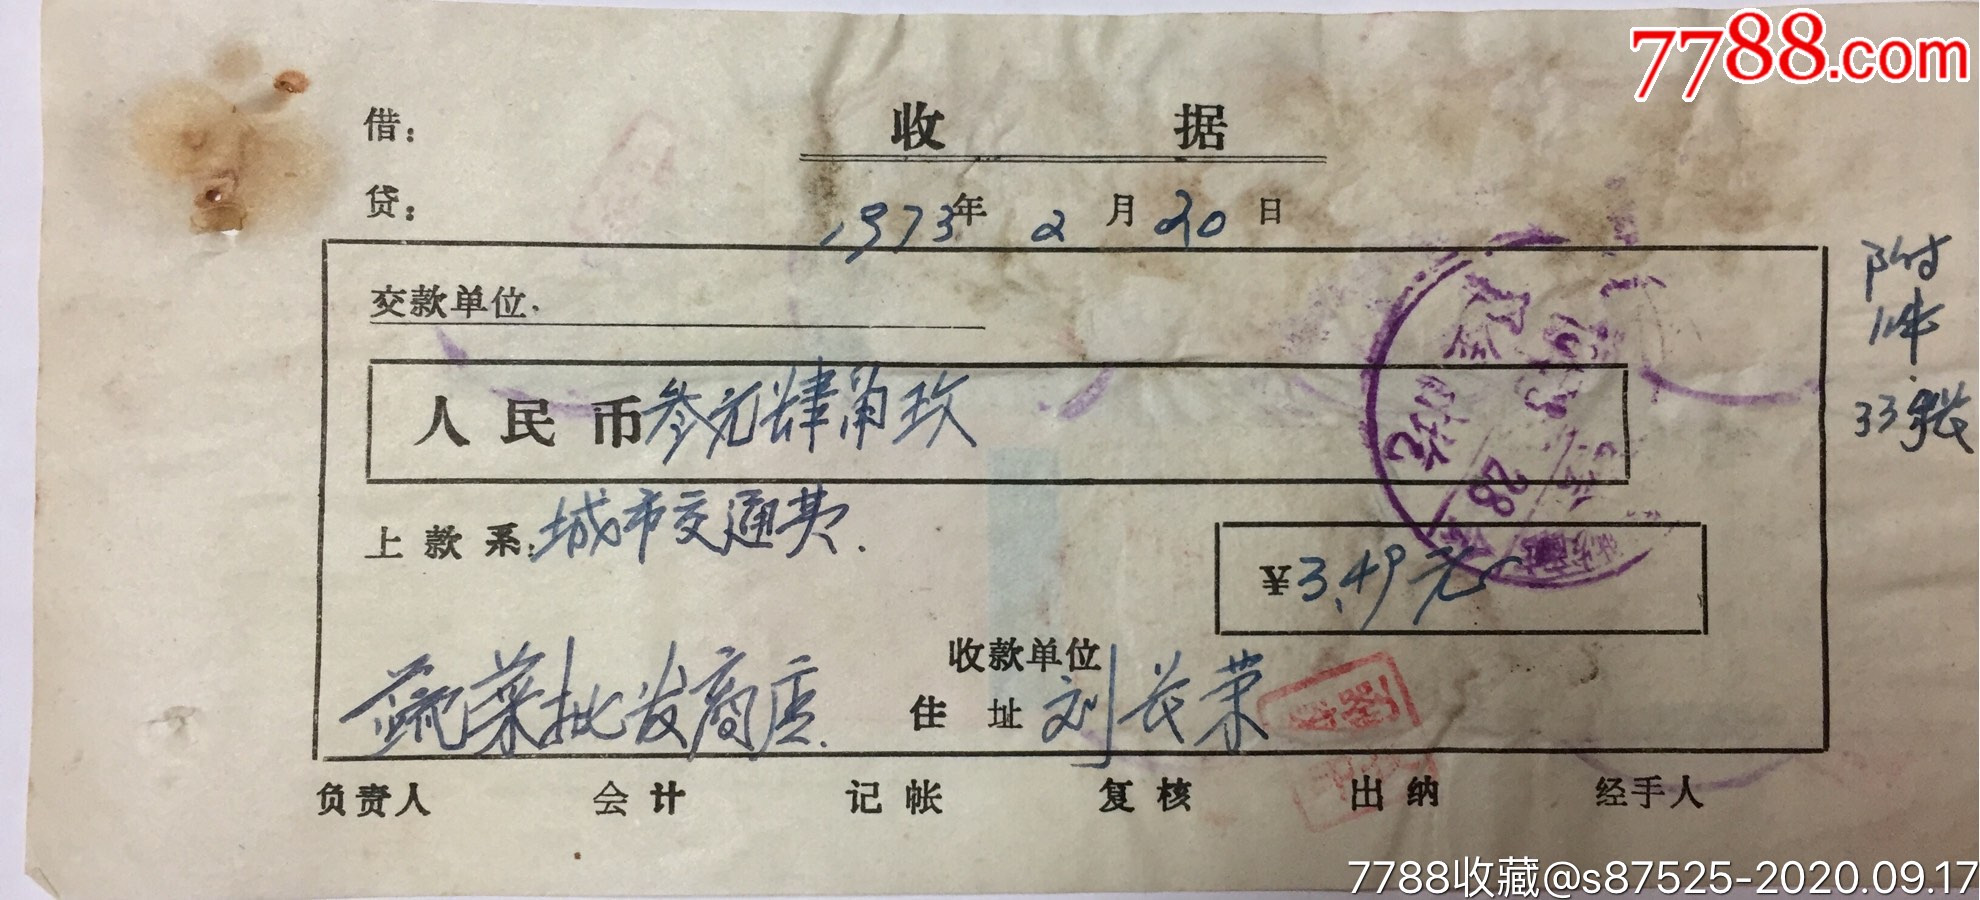 7788.com
借:
收 据
贷:
1973年 2 月 20 日
交款单位.
附
件
33张
人民币叁元肆角玖
上款系:城市交通费.
¥3.49元
28
收款单位
蔬菜批发商店.
住 址 刘长荣
负责人 会计 记帐 复核 出纳 经手人
7788收藏@s87525-2020.09.17